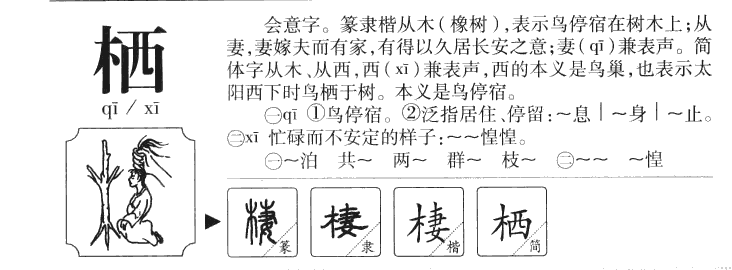 栖
qī / xī
会意字。篆隶楷从木(橡树),表示鸟停宿在树木上;从
妻,妻嫁夫而有家,有得以久居长安之意;妻(qī)兼表声。简
体字从木、从西,西(xī)兼表声,西的本义是鸟巢,也表示太
阳西下时鸟栖于树。本义是鸟停宿。
㊀qī ①鸟停宿。②泛指居住、停留:～息｜～身｜～止。
㊁xī 忙碌而不安定的样子:～～惶惶。
㊀～泊 共～ 两～ 群～ 枝～ ㊁～～ ～惶
棲 篆
棲 隶
棲 楷
栖 简